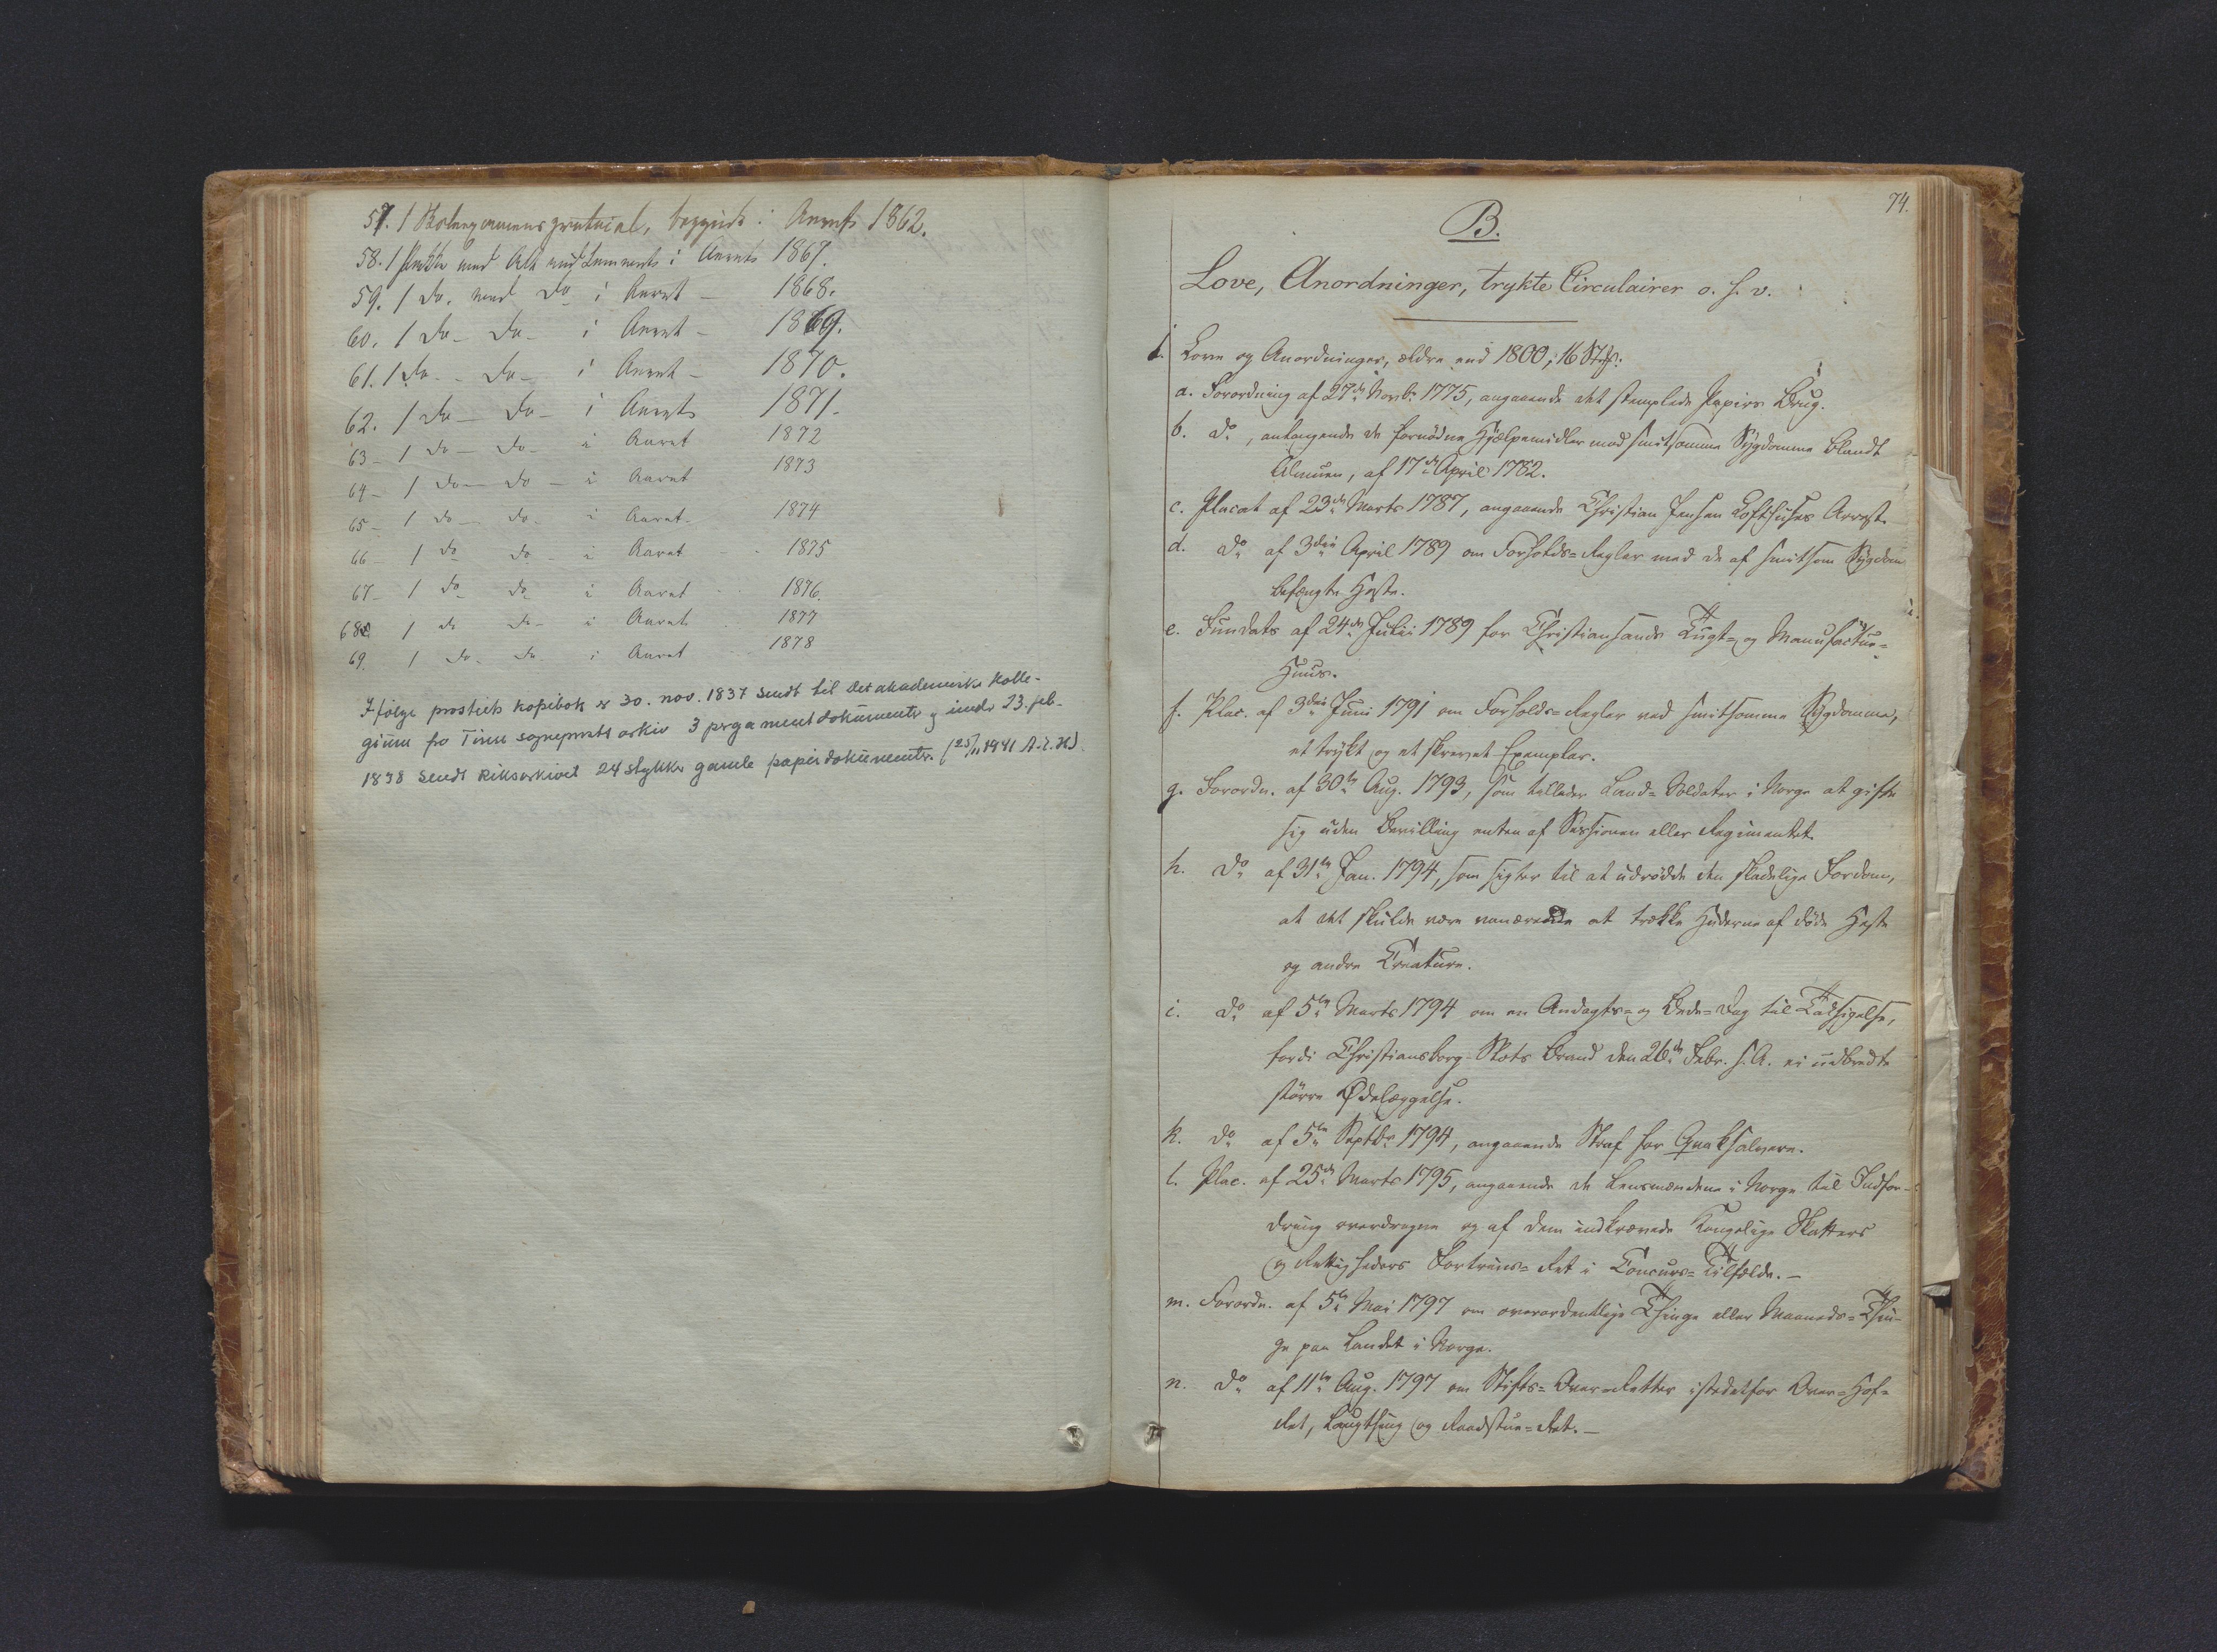 57. 1 protocol, begyndt i Aaret 1862.
58. 1 Pakke med Alt indkommendt i Aaret 1867.
59. 1 do. med do i Aaret - 1868.
60. 1 do - do - i Aaret - 1869.
61. 1 do - do - i Aaret - 1870.
62. 1 do - do - i Aaret 1871.
63 - 1 do - do - i Aaret 1872
64 - 1 do - do - i Aaret 1873
65 - 1 do - do - i Aaret - 1874
66 - 1 do do - i Aaret - - 1875
67 - 1 do do i Aaret - - 1876.
68 1 do do - i Aaret - 1877
69. 1 do - do i Aaret - - 1878
Ifölge prostiets kopibok er 30. nov. 1837 sendt til Det akademiske Kolle-
gium fra Tinn sogneprests arkiv 3 pergamentdokumenter og under 23. feb.
1838 sendt Riksarkivet 24 stykker gamle papirdokumenter. (25/11 1941 A.E.H)
74.
B.
Love, Anordninger, trykte Circulairer o. s. v.
1. Love og Anordninger, ældre end 1800; 16 Stkr:
a. Forordning af 27de Novbr 1775, angaaende det stemplede Papirs Brug.
b. do, anlangende de fornødne Hjælpemidler mod smitsomme Sygdomme blandt
Almuen, af 17de April 1782.
c. Placat af 23de Marts 1787, angaaende Christian Jensen Lofthuses Arrest.
d. do af 3die April 1789 om Forholds-Regler med de af smitsom Sygdom
befængte Heste.
e. Fundats af 24de Julii 1789 for Christiansands Tugt- og Manufactur-
Huus.
f. Plac. af 3die Juni 1791 om Forholds-Regler ved smitsomme Sygdomme,
et trykt og et skrevet Exemplar.
g. Forordn. af 30te Aug. 1793, som tillader Land-Soldater i Norge at gifte
sig uden Bevilling enten af Sessionen eller Regimentet.
h. do af 31te Jan. 1794, som sigter til at udrødde den skadelige Fordom,
at det skulde være vanærende at trække Huderne af døde Heste
og andre Creature.
i. do af 5te Marts 1794 om en Andagts- og Bede-Dag til Taksigelse,
fordi Christiansborg-Slots Brand den 26de Febr. s. A. ei udbredte
større Ødelæggelse.
k. do af 5te Septbr 1794, angaaende Straf for Qvaksalvere.
l. Plac. af 25de Marts 1795, angaaende de Lensmændene i Norge til Indfor-
dring overdragne og af dem indkrævede Kongelige Skatters
og Rettigheders Fortrins-Ret i Concurs-Tilfælde. -
m. Forordn. af 5te Mai 1797 om overordentlige Thinge eller Maaneds-Thin-
ge paa Landet i Norge.
n. do af 11te Aug. 1797 om Stifts-Over-Retter istedetfor Over-Hof-
Ret, Laugthing og Raadstue-Ret. -